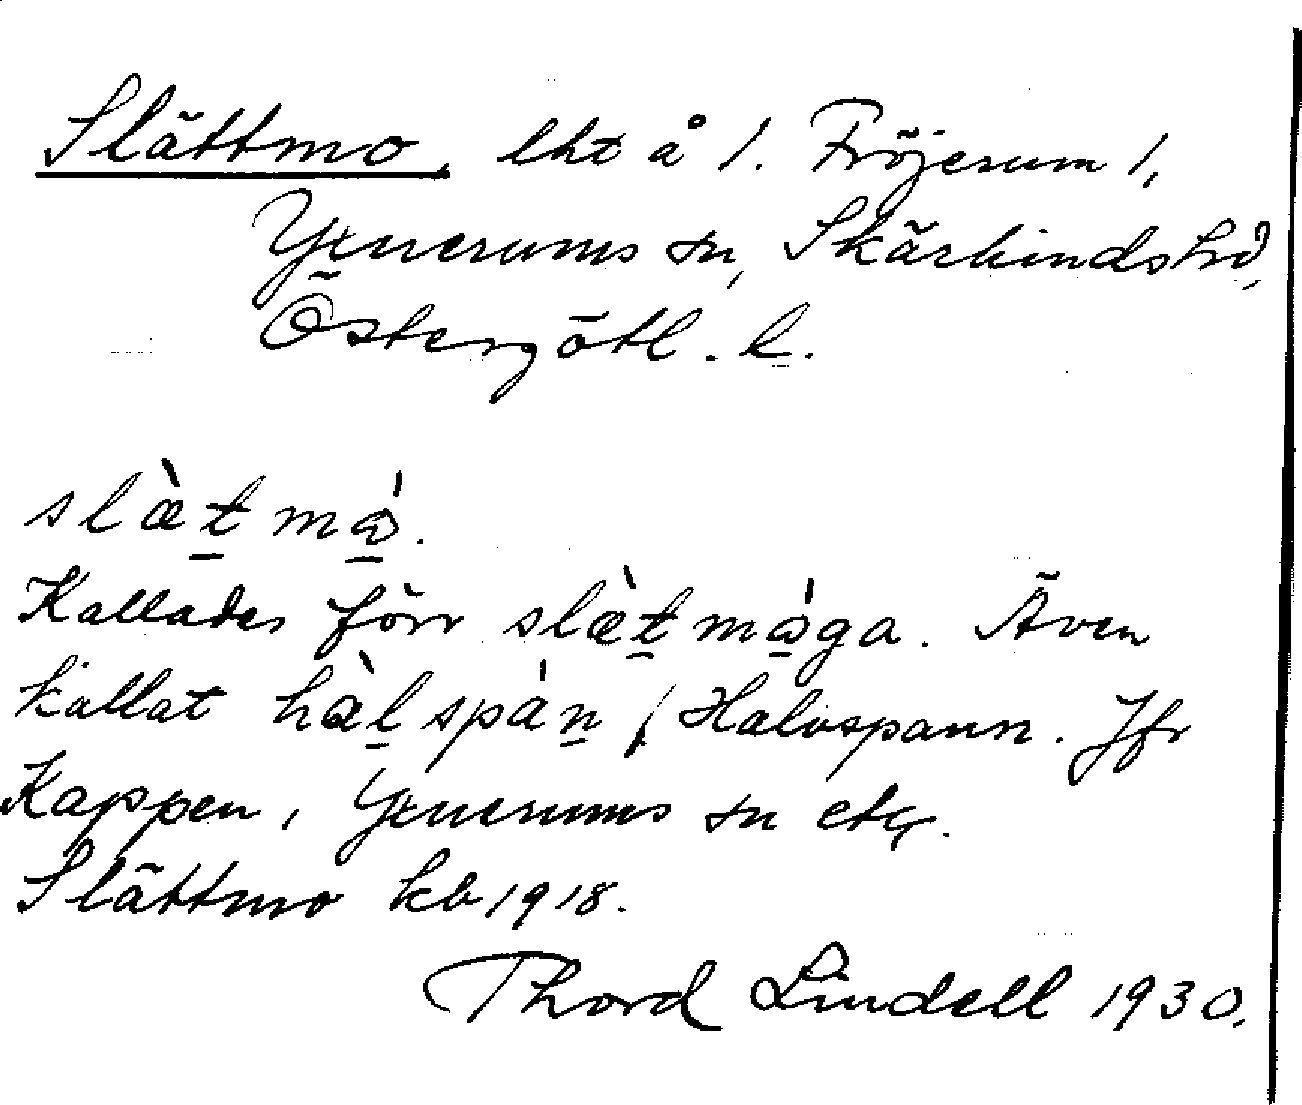 Slättmo, lht å 1. Fröjerum 1,
Yxnerums sn, Skärkinds hd,
Östergötl. l.
slæ̀t̠mǻ̠.
Kallades förr slæ̀t̠mǻ̠ga. Även
kallat hàl̠spán̠, Halvspann. Jfr
Kappen, Yxnerums sn etc.
Slättmo kb 1918.
Thord Lindell 1930.